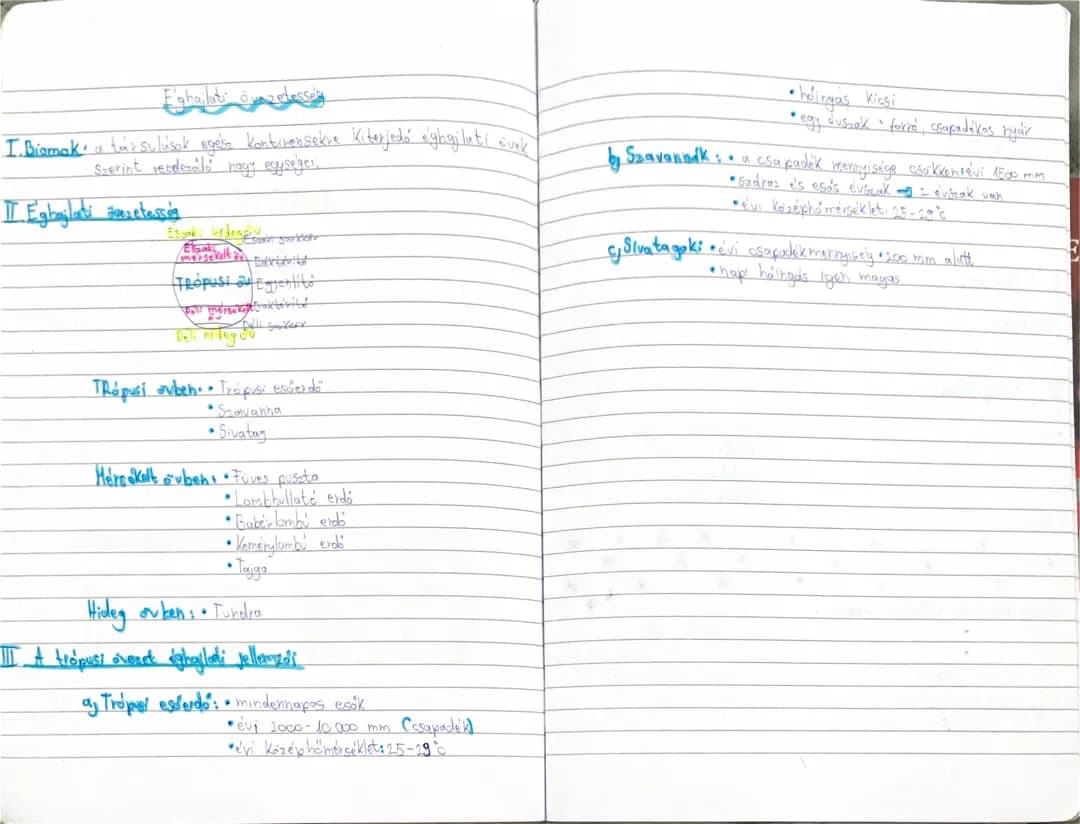 Éghajlati övezetesség
I. Biomok: a társulások egész kontinensekre kiterjedő éghajlati övek
szerint rendeződő nagy egységei.
II. Éghajlati övezetesség
Északi hideg öv
Északi sarkkör
Északi mérsékelt öv
Baktérítő
TRÓPUSI ÖV Egyenlítő
Déli mérsékelt Baktérítő
öv
Déli sarkkör
Déli hideg öv
TRópusi övben: • Trópusi esőerdő
• Szavanna
• Sivatag
Mérsékelt övben: • Füves puszta
• Lombhullató erdő
• Babérlombú erdő
• Keménylombú erdő
• Tajga
Hideg övben: • Tundra
III. A trópusi övezet éghajlati jellemzői
a, Trópusi esőerdő: • mindennapos esők
• évi 2000-10 000 mm (csapadék)
• évi középhőmérséklet: 25-29°C
• hőingás kicsi
• egy évszak: forró, csapadékos nyár
b, Szavannák: • a csapadék mennyisége csökken: évi 1500 mm
• száraz és esős évszak → 2 évszak van
• évi középhőmérséklet: 25-29°C
c, Sivatagok: • évi csapadékmennyiség: 200 mm alatt
• napi hőingás igen magas